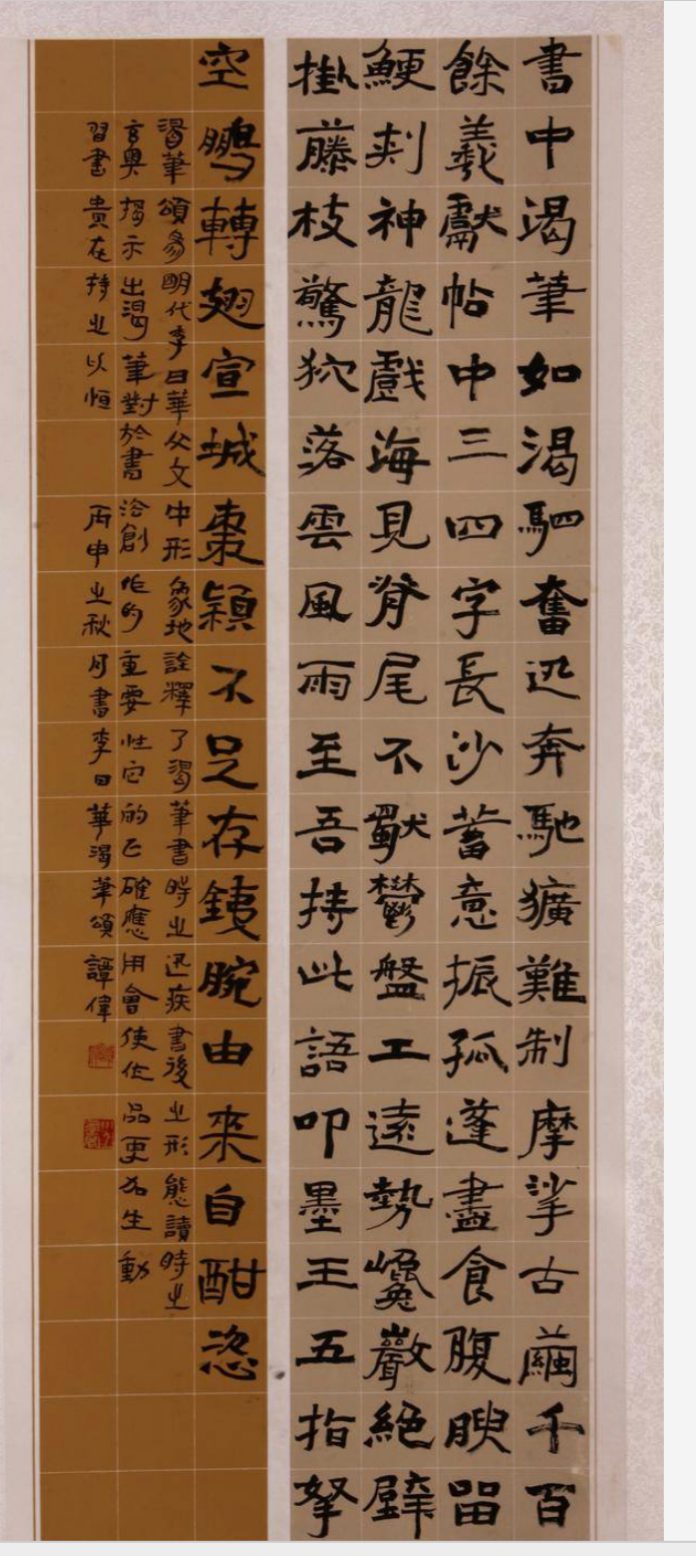 書中渴筆如渴駟奮迅奔馳獷難制摩挲古繭千百
餘羲獻帖中三四字長沙蓄意振孤蓬盡食腹腴留
鯁刺神龍戲海見脊尾不獨鬱盤工遠勢巉巖絕壁
掛藤枝驚狖落雲風雨至吾持此語叩墨王五指拏
空鵬轉翅宣城棗穎不足存銕腕由來自酣恣
渴筆頌為明代李日華文中形象地詮釋了渴筆書時之迅疾書後之形態讀時之
玄奧揭示出渴筆對於書創作的重要性它的正確應用會使作品更加生動
習書貴在持之以恒丙申之秋月書李日華渴筆頌譚偉